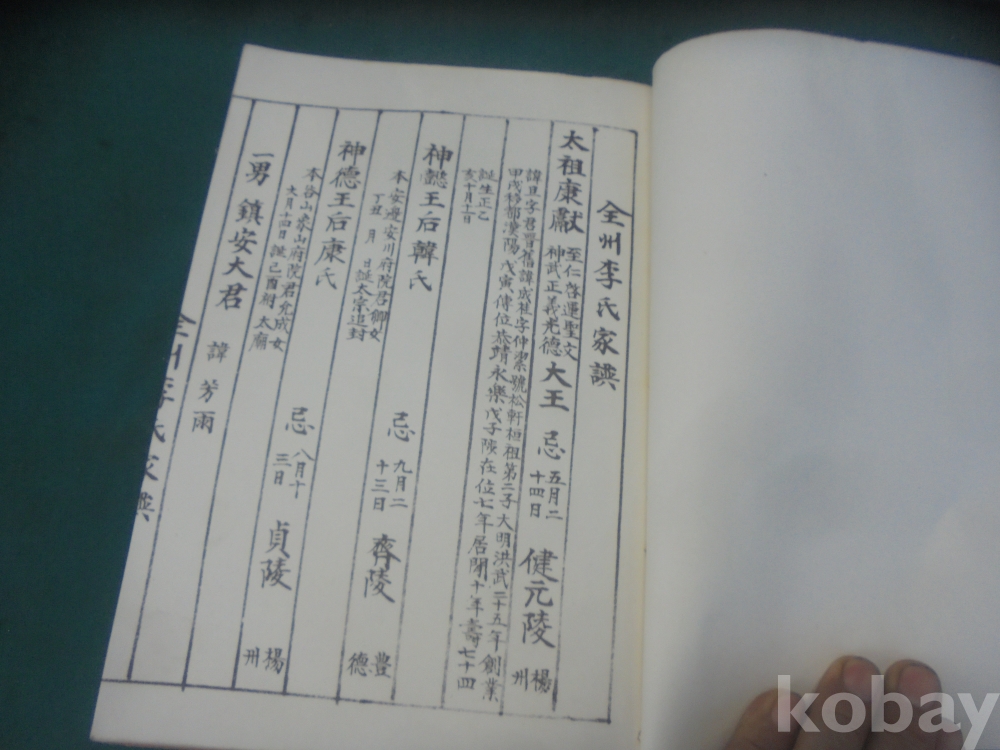 全州李氏家譜
太祖康獻 至仁啓運聖文 神武正義光德 大王 忌 五月二 十四日 健元陵 楊 州
諱旦字君晋舊諱成桂字仲潔號松軒桓祖第二子大明洪武二十五年創業
甲戌移都漢陽戊寅傳位恭靖永樂戊子陟在位七年居閑十年壽七十四
誕生正乙
亥十月十一日
神懿王后韓氏 忌 九月二 十三日 齊陵 豊 德
本安邊安川府院君卿女
丁丑 月 日誕太宗追封
神德王后康氏 忌 八月十 三日 貞陵 楊 州
本谷山象山府院君允成女
六月十四日誕己酉祔太廟
一男 鎮安大君 諱芳雨
全州李氏家譜
kobay